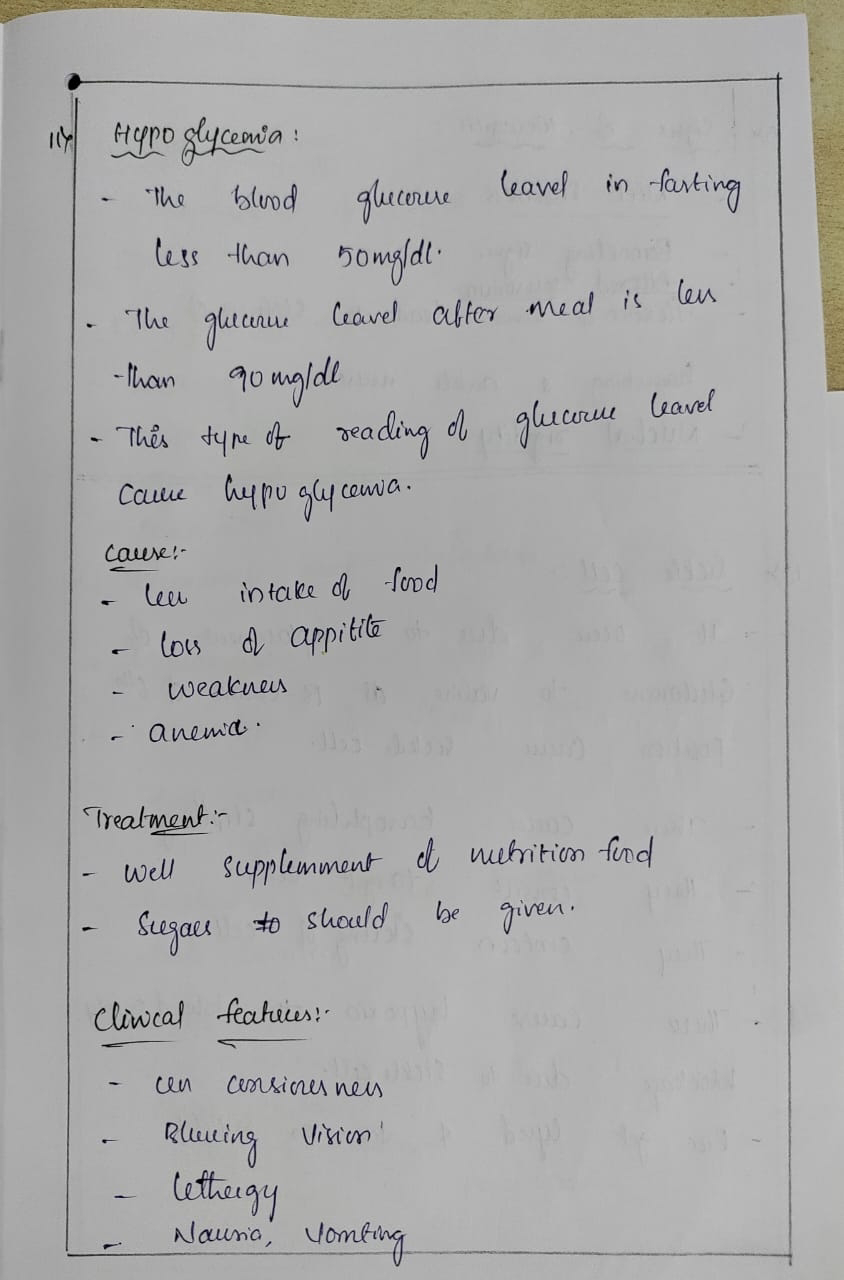 11Y Hypoglycemia :
- The blood glucouse leavel in fasting
less than 50mg/dl.
- The glucouse leavel after meal is less
than 90 mg/dl
- This type of reading of glucouse leavel
cause hypoglycemia.
Cause:-
- less intake of food
- loss of appitite
- weakness
- anemia.
Treatment:-
- well supplemment of nutrition food
- Sugars to should be given.
Clinical features:-
- un consiousness
- Bluring Vision
- lethergy
- Nausia, Vomting